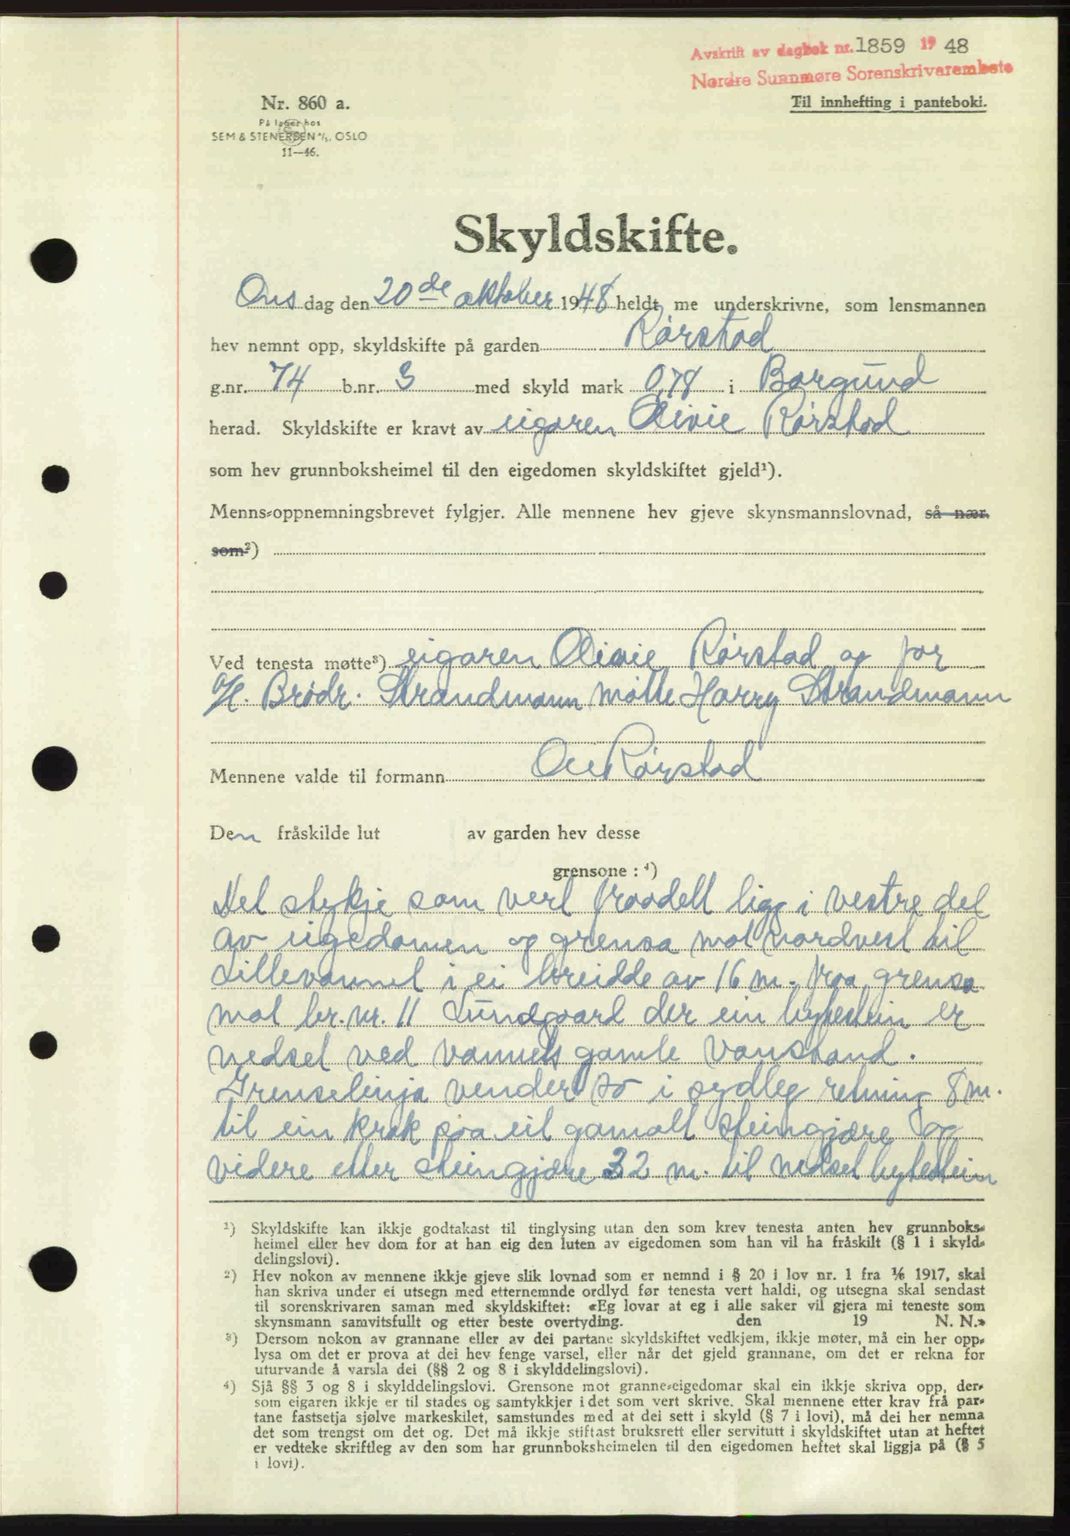 Avskrift av dagbok nr. 1859 19 48
Nordre Sunnmøre Sorenskrivarembete
Nr. 860 a.
Til innhefting i panteboki.
På lager hos
SEM & STENERSEN A/S, OSLO
11—46.
Skyldskifte.
Ons dag den 20de oktober 1948 heldt me underskrivne, som lensmannen
hev nemnt opp, skyldskifte på garden Rørstad
g.nr. 74 b.nr. 3 med skyld mark 0,78 i Borgund
herad. Skyldskifte er kravt av eigaren Olivie Rørstad
som hev grunnboksheimel til den eigedomen skyldskiftet gjeld¹).
Menns-oppnemningsbrevet fylgjer. Alle mennene hev gjeve skynsmannslovnad, så nær
som²)
Ved tenesta møtte³) eigaren Olivie Rørstad og for
A/S. Brødr. Strandmann møtte Harry Strandmann
Mennene valde til formann Ole Rørstad
Den fråskilde lut av garden hev desse
grensone : ⁴)
Det stykje som vert fraadelt ligg i vestre del
av eigedomen og grensa mot nordvest til
Lillevannet i ei breidde av 16 m. fraa grensa
mot br. nr. 11 Lundgaard der ein bytestein er
nedset ved vannets gamle vanstand.
Grenselinja vender so i sydleg retning 8 m.
til ein krok paa eit gamalt steingjære og
videre etter steingjære 32 m. til nedset bytestein
¹) Skyldskifte kan ikkje godtakast til tinglysing utan den som krev tenesta anten hev grunnboks-
heimel eller hev dom for at han eig den luten av eigedomen som han vil ha fråskilt (§ 1 i skyld-
delingslovi).
²) Hev nokon av mennene ikkje gjeve slik lovnad som er nemnd i § 20 i lov nr. 1 fra 1/6 1917, skal
han skriva under ei utsegn med etternemnde ordlyd før tenesta vert haldi, og utsegna skal sendast
til sorenskrivaren saman med skyldskiftet: «Eg lovar at eg i alle saker vil gjera mi teneste som
skynsmann samvitsfullt og etter beste overtyding. den 19 N. N.»
³) Dersom nokon av grannane eller av dei partane skyldskiftet vedkjem, ikkje møter, må ein her opp-
lysa om det er prova at dei hev fenge varsel, eller når det gjeld grannane, om det er rekna for
uturvande å varsla dei (§§ 2 og 8 i skylddelingslovi).
⁴) Sjå §§ 3 og 8 i skylddelingslovi. Grensone mot granne-eigedomar skal ein ikkje skriva opp, der-
som eigaren ikkje er til stades og samtykkjer i det som vert skrive. Skal mennene etter krav frå par-
tane fastsetja sjølve markeskilet, samstundes med at dei sett i skyld (§ 7 i lovi), må dei her nemna
det som trengst om det og. Det må ikkje stiftast bruksrett eller servitutt i skyldskiftet utan at heftet
er vedteke skriftleg av den som har grunnboksheimelen til den eigedomen heftet skal liggja på (§ 5
i lovi).